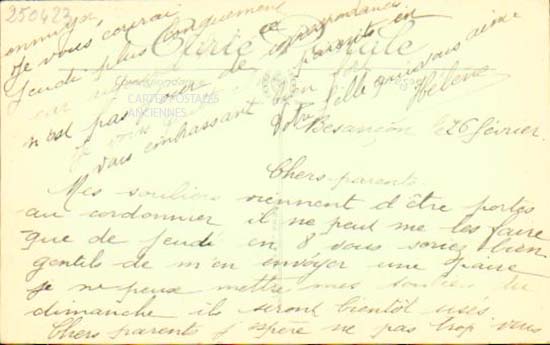 250423
Carte Postale
Correspondance
CARTES POSTALES
ANCIENNES
Besançon le 26 février
Chers parents
Mes souliers viennent d'être portés
au cordonnier il ne peut me les faire
que de jeudi en 8 vous seriez bien
gentils de m'en envoyer une paire
je ne peux mettre mes souliers du
dimanche ils seront bientôt usés.
Chers parents j'espère ne pas trop vous
ennuyer,
Je vous écrirai
jeudi plus longuement
car ce
n'est pas de correspondance
Je vous parents en
vous embrassant bien
Votre fille qui vous aime
Hélène